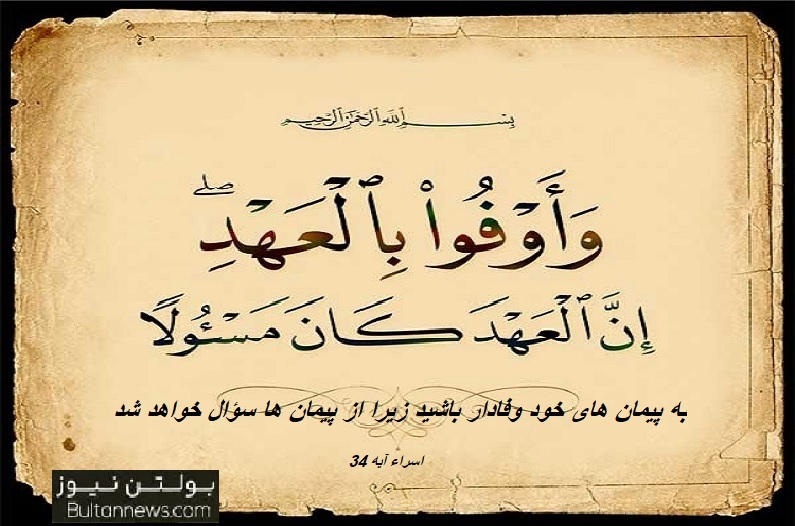 بِسْمِ ٱللَّهِ ٱلرَّحْمَٰنِ ٱلرَّحِيمِ
وَأَوْفُوا۟ بِٱلْعَهْدِ ۖ
إِنَّ ٱلْعَهْدَ كَانَ مَسْـُٔولًا
به پیمان های خود وفادار باشید زیرا از پیمان ها سؤال خواهد شد
اسراء آیه 34
بولتن نیوز
Bultannews.com